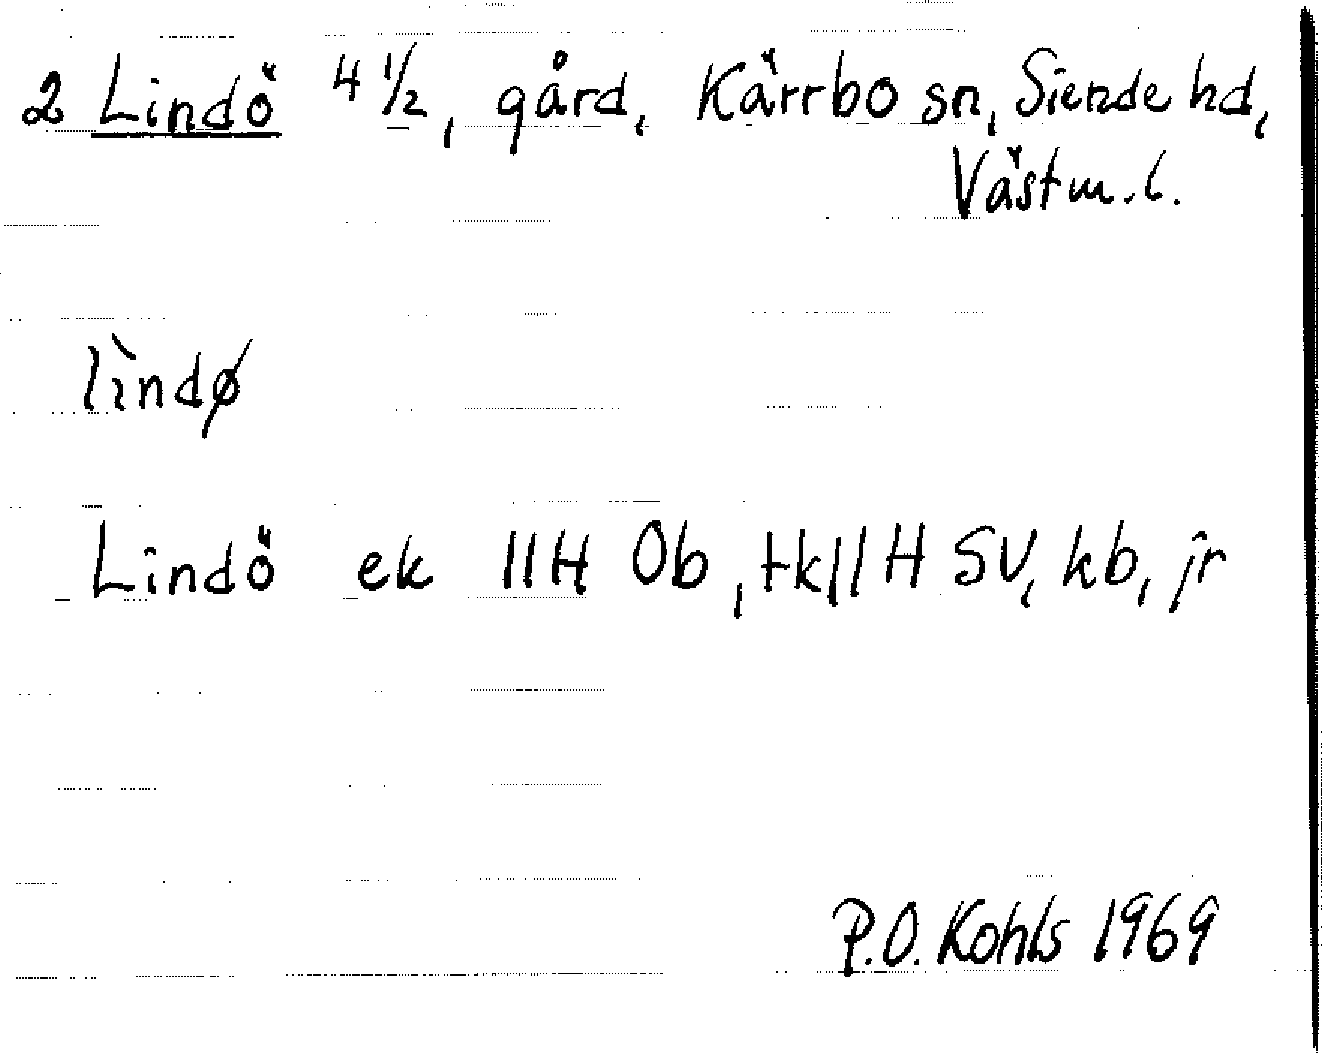 2 Lindö 4 1/2, gård, Kärrbo sn, Siende hd,
Västm. l.
lìndø
Lindö ek 11H Ob, tk11H SV, kb, jr
P.O. Kohls 1969